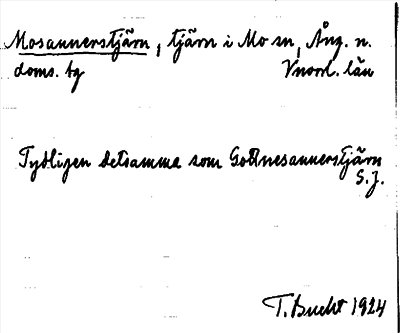 Mosannerstjärn, tjärn i Mo sn, Ång. n.
doms. tg Vnorrl. län
Tydligen detsamma som Gottnesannerstjärn
S.J.
T. Bucht 1924